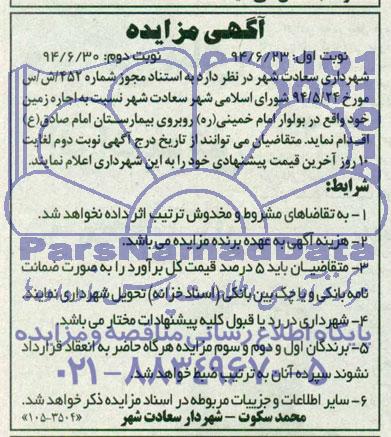 آگهی مزایده
نوبت اول: ۹۴/۶/۲۳ نوبت دوم: ۹۴/۶/۳۰
شهرداری سعادت شهر در نظر دارد به استناد مجوز شماره ۴۵۲/ش/س
مورخ ۹۴/۵/۲۴ شورای اسلامی شهر سعادت شهر نسبت به اجاره زمین
خود واقع در بولوار امام خمینی(ره) روبروی بیمارستان امام صادق(ع)
اقدام نماید. متقاضیان می توانند از تاریخ درج آگهی نوبت دوم لغایت
۱۰ روز آخرین قیمت پیشنهادی خود را به این شهرداری اعلام نمایند.
شرایط:
۱- به تقاضاهای مشروط و مخدوش ترتیب اثر داده نخواهد شد.
۲- هزینه آگهی به عهده برنده مزایده می باشد.
۳- متقاضیان باید ۵ درصد قیمت کل برآورد را به صورت ضمانت
نامه بانکی و یا چک بین بانکی (اسناد خزانه) تحویل شهرداری نمایند.
۴- شهرداری در رد یا قبول کلیه پیشنهادات مختار می باشد.
۵- برندگان اول و دوم و سوم مزایده هرگاه حاضر به انعقاد قرارداد
نشوند سپرده آنان به ترتیب ضبط خواهد شد.
۶- سایر اطلاعات و جزییات مربوطه در اسناد مزایده ذکر خواهد شد.
محمد سکوت - شهردار سعادت شهر «۱۰۵-۳۵۰۴»
ParsNamadData
پایگاه اطلاع رسانی مناقصه و مزایده
۰۲۱-۸۸۳۴۹۶۷۰-۵